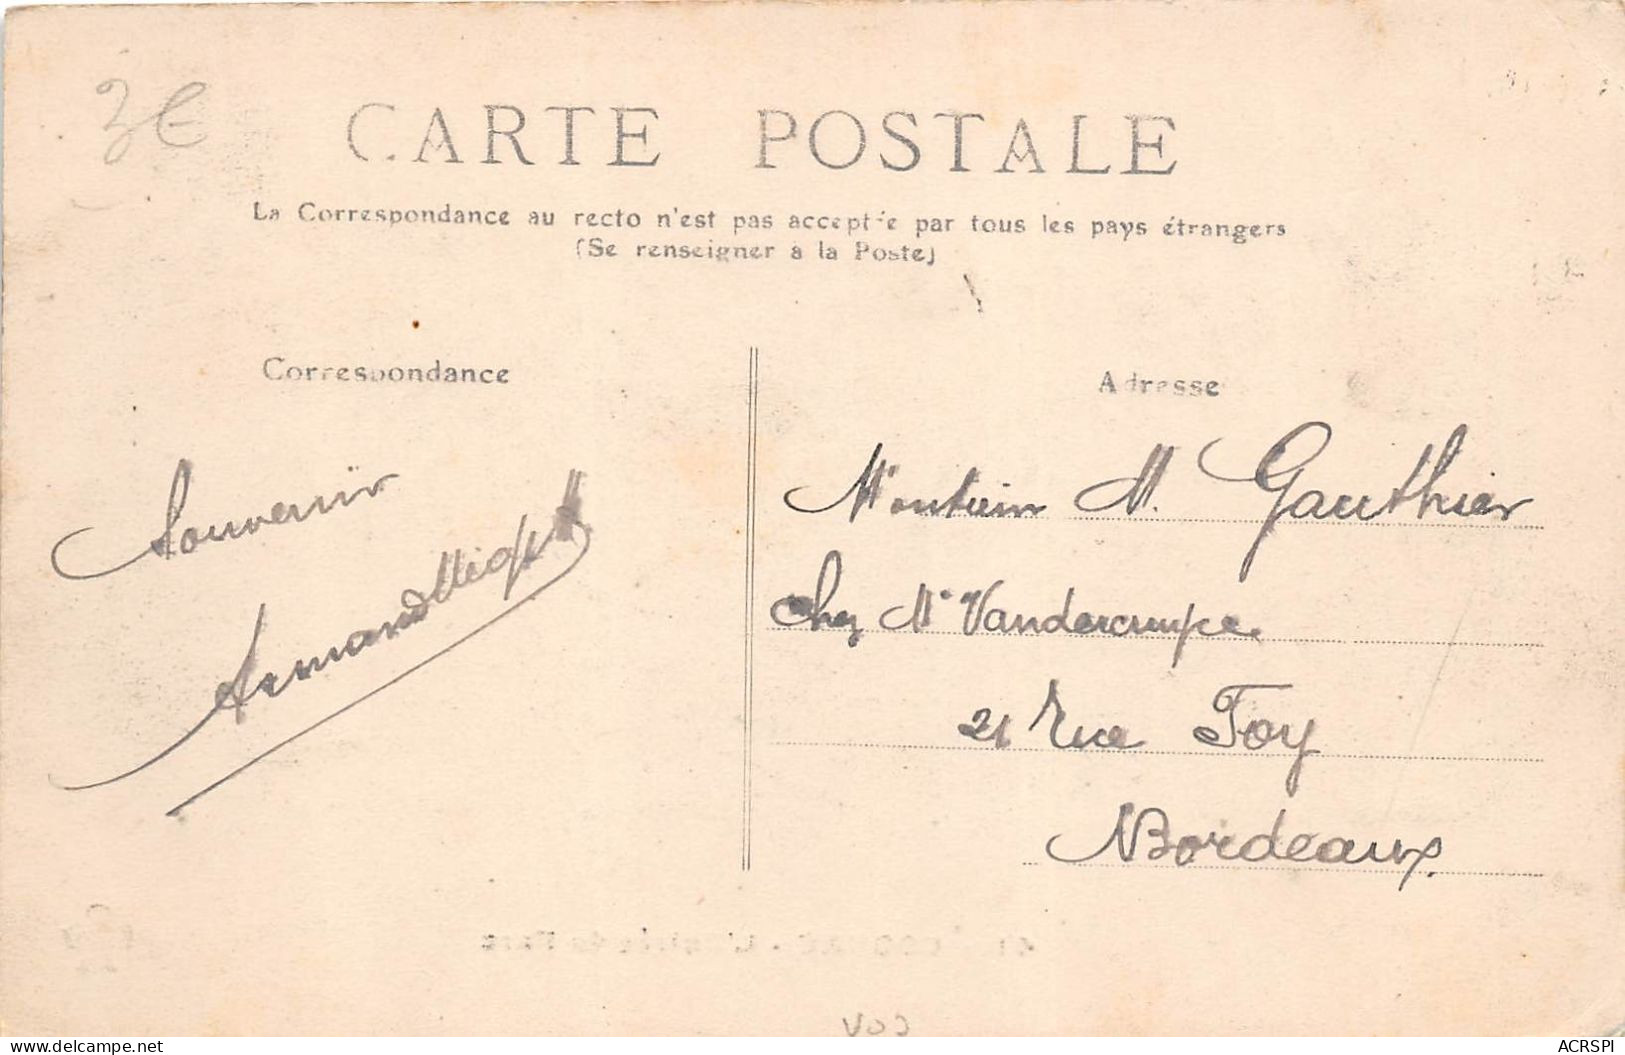 3€
CARTE POSTALE
La Correspondance au recto n'est pas acceptée par tous les pays étrangers
(Se renseigner à la Poste)
Correspondance
Adresse
Souvenir
Armand
Monsieur M. Gauthier
chez Mr Vandercruyce
21 Rue Foy
Bordeaux.
delcampe.net
ACRSPI